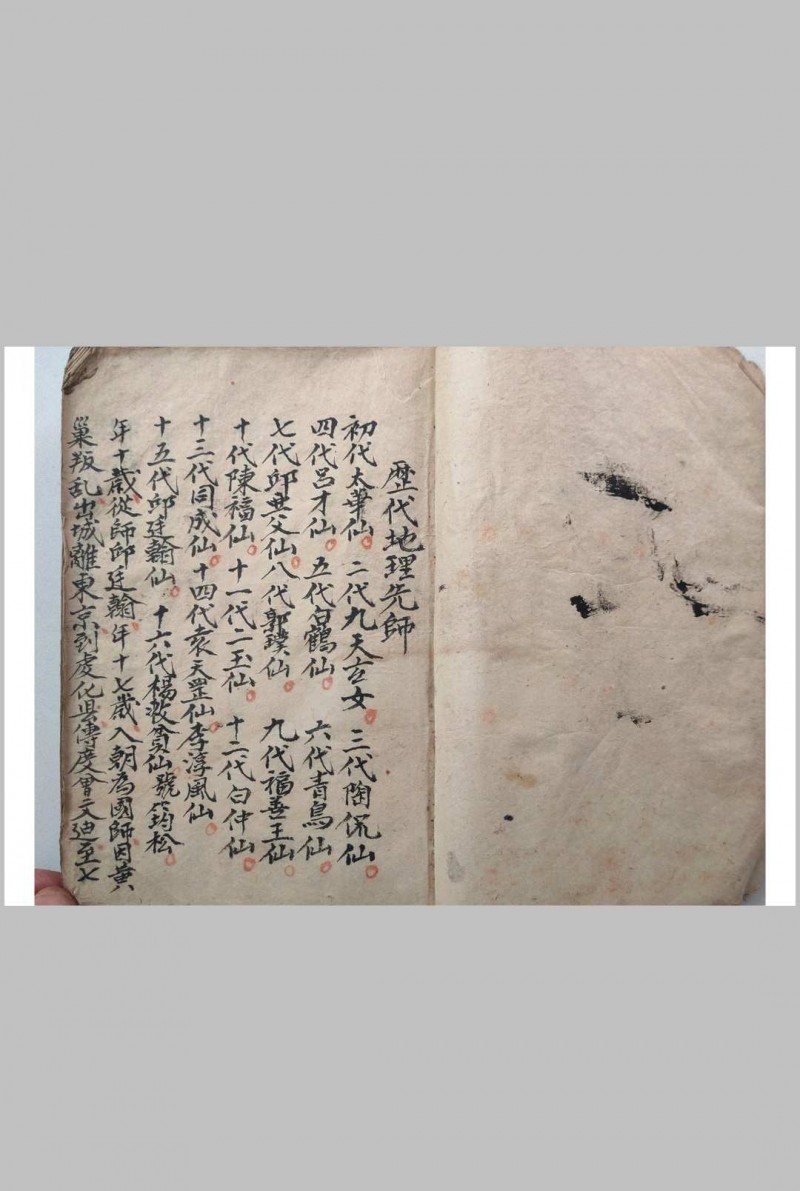 歷代地理先師
初代太華仙 二代九天玄女 三代陶侃仙
四代呂才仙 五代白鶴仙 六代青鳥仙
七代邱典父仙八代郭璞仙 九代福善王仙
十代陳福仙 十一代二玉仙 十二代白仲仙
十三代同成仙十四代袁天罡仙李淳風仙
十五代邱廷翰仙 十六代楊救貧仙號筠松
年十歲從師邱廷翰年十七歲入朝為國師因黃
巢叛乱出城離東京到虔化縣傳度曾文迪至七